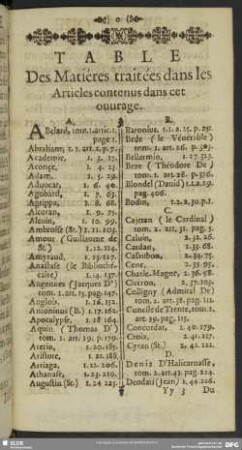 TABLE
Des Matières traitées dans les
Articles contenus dans cet
ouurage.
A.
ABelard, tom.1.artic.1.
page 1.
Abraham, t. 1. art. 2. p. 5.
Academie, 1. 3. 17.
Aconce, 1. 4. 23.
Adam, 1. 5. 29.
Aduocat, 1. 6. 40.
Agobard, 1. 7. 63.
Agrippa, 1. 8. 68.
Alcoran, 1. 9. 75.
Alcuin, 1. 10. 99.
Ambroise (St.) 1. 11. 103.
Amour (Guillaume de
St.) 1. 12. 114.
Amyraud, 1. 13. 127.
Anastase (le Bibliothé-
caire) 1. 14. 137.
Angennes (Jacques D')
tom. 1. art. 15. pag. 147.
Anglois, 1. 16. 152.
Antoninus (B.) 1. 17. 161.
Apocalypse, 1. 18. 164.
Aquin (Thomas D')
tom. 1. art. 19. p. 179.
Aretin, 1. 20. 185.
Aristote, 1. 21. 188.
Arriaga, 1. 22. 206.
Athanase, 1. 23. 210.
Augustin (St.) 1. 24. 225.
B.
Baronius, 1. 2. a. 25. p. 251.
Bede (le Vénérible)
tom. 1. art. 26. p. 305.
Bellarmin, 1. 27. 323.
Beze (Théodore De)
tom. 1. art. 28. p. 356.
Blondel (Dauid) 1. 2. a. 29.
pag. 406.
Bodin, 1. 2. a. 30. p. 1.
C.
Cajetan (le Cardinal)
tom. 2. art. 31. pag. 5.
Caluin, 2. 32. 26.
Cardan, 2. 33. 68.
Casaubon, 2. 34. 75.
Cene, 2. 35. 95.
Charle-Magne, 2. 36. 58.
Ciceron, 2. 37. 109.
Colligny (Admiral De)
tom. 2. art. 38. pag. 111.
Concile de Trente, tom. 2.
art. 39. pag. 115.
Concordat, 2. 40. 179.
Croix, 2. 41. 117.
Cyran (St.) 2. 42. 121.
D.
Denis D'Halicarnasse,
tom. 2. art. 43. pag. 214.
Deodati (Jean) 2. 44. 226.
Yy 3 Du